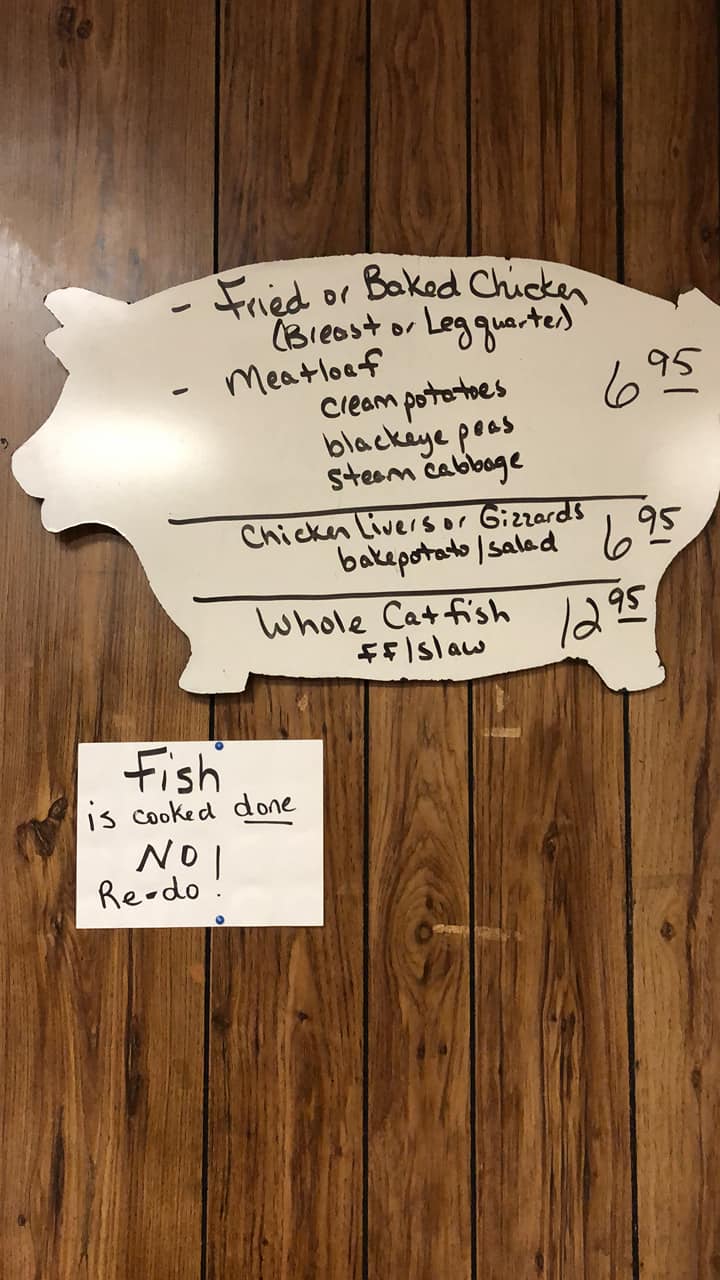 - Fried or Baked Chicken
(Breast or Leg quarter)
- Meatloaf
cream potatoes
6 95
blackeye peas
steam cabbage
Chicken Livers or Gizzards
bakepotato/salad
6 95
Whole Catfish
FF/slaw
12 95
Fish
is cooked done
NO!
Re-do